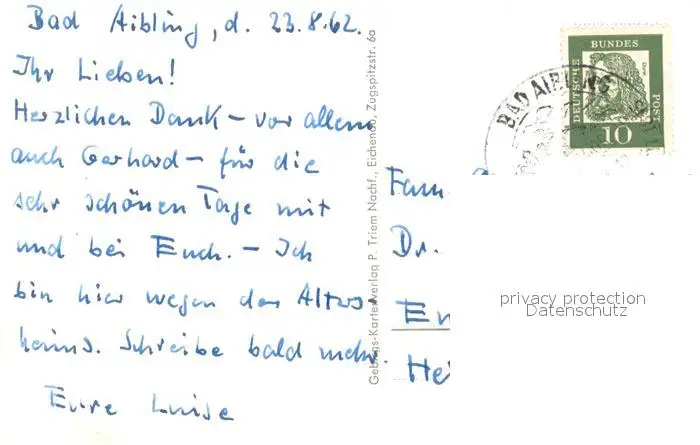 Bad Aibling, d. 23.8.62.
Ihr Lieben!
Herzlichen Dank – vor allem
auch Gerhard – für die
sehr schönen Tage mit
und bei Euch. – Ich
bin hier wegen des Alters-
heims. Schreibe bald mehr.
Eure Luise
Gebirgs-Kartenverlag P. Triem Nachf., Eichenau, Zugspitzstr. 6a
DEUTSCHE
BUNDES
POST
10
BAD AIBLING
Fam.
Dr.
privacy protection
Datenschutz